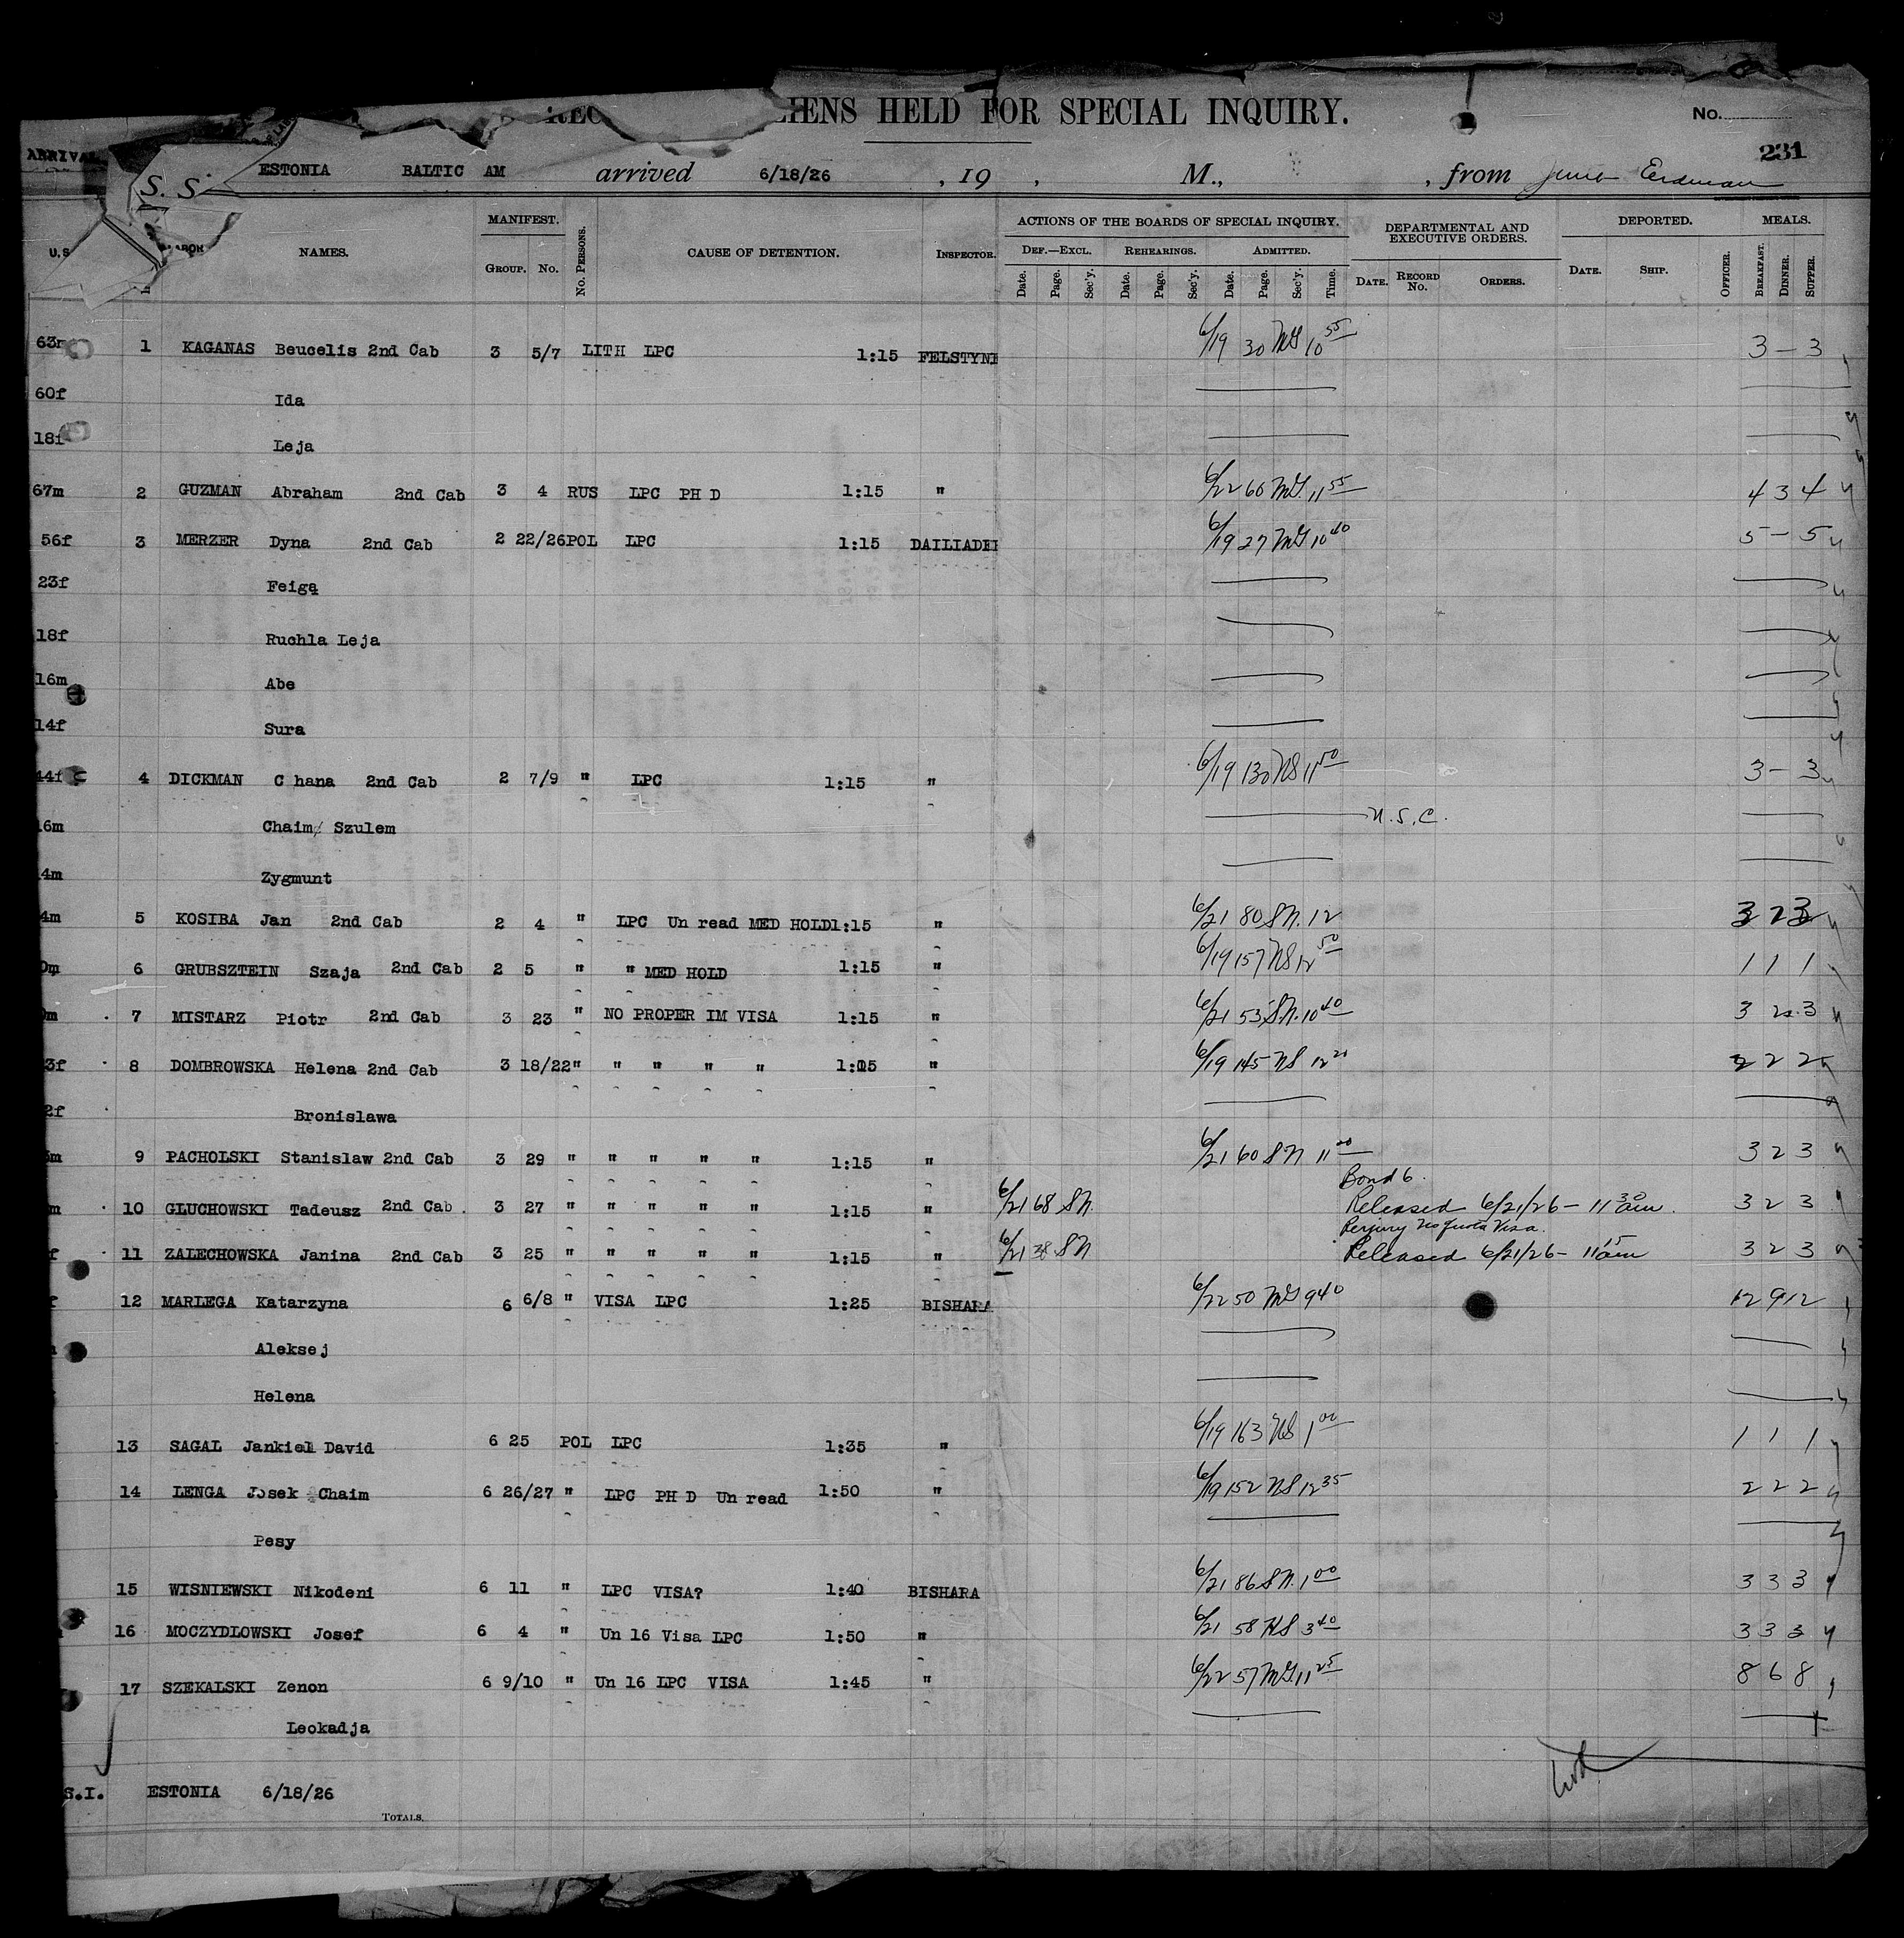 REC LIENS HELD FOR SPECIAL INQUIRY. No.
231
ARRIVAL
S. S. ESTONIA BALTIC AM arrived 6/18/26 , 19 , M., , from
MANIFEST. ACTIONS OF THE BOARDS OF SPECIAL INQUIRY. DEPARTMENTAL AND EXECUTIVE ORDERS. DEPORTED. MEALS.
U.S NAMES. GROUP. No. No. PERSONS. CAUSE OF DETENTION. INSPECTOR. DEF.—EXCL. REHEARINGS. ADMITTED.
Date. Page. Sec'y. Date. Page. Sec'y. Date. Page. Sec'y. Time. DATE. RECORD No. ORDERS. DATE. SHIP. OFFICER. BREAKFAST. DINNER. SUPPER.
63m 1 KAGANAS Beucelis 2nd Cab 3 5/7 LITH LPC 1:15 FELSTYNE 6/19 30 MG 10 55 3 – 3
60f Ida
18f Leja
67m 2 GUZMAN Abraham 2nd Cab 3 4 RUS LPC PH D 1:15 " 6/22 66 MG 11 55 4 3 4
56f 3 MERZER Dyna 2nd Cab 2 22/26 POL LPC 1:15 DAILIADE 6/19 27 MG 10 40 5 – 5
23f Feiga
18f Ruchla Leja
16m Abe
14f Sura
44f 4 DICKMAN C hana 2nd Cab 2 7/9 " LPC 1:15 " 6/19 130 NS 11 50 3 – 3
16m Chaim Szulem U.S.C.
4m Zygmunt
4m 5 KOSIBA Jan 2nd Cab 2 4 " LPC Un read MED HOLD 1:15 " 6/21 80 SN. 12 3 2 3
0m 6 GRUBSZTEIN Szaja 2nd Cab 2 5 " " MED HOLD 1:15 " 6/19 157 NS 12 50 1 1 1
0m 7 MISTARZ Piotr 2nd Cab 3 23 " NO PROPER IM VISA 1:15 " 6/21 53 SN. 10 40 3 2 3
3f 8 DOMBROWSKA Helena 2nd Cab 3 18/22 " " " " " 1:15 " 6/19 145 NS 12 20 2 2 2
2f Bronislawa
m 9 PACHOLSKI Stanislaw 2nd Cab 3 29 " " " " " 1:15 " 6/21 60 SN 11 00 3 2 3
Bond 6.
m 10 GLUCHOWSKI Tadeusz 2nd Cab. 3 27 " " " " " 1:15 " 6/21 68 SN. Released 6/21/26 – 11 30 am. 3 2 3
f 11 ZALECHOWSKA Janina 2nd Cab 3 25 " " " " " 1:15 " 6/21 38 SN Released 6/21/26 – 11 15 am 3 2 3
f 12 MARLEGA Katarzyna 6 6/8 " VISA LPC 1:25 BISHARA 6/22 50 MG 9 40 12 9 12
Aleksej
Helena
13 SAGAL Jankiel David 6 25 POL LPC 1:35 " 6/19 163 NS 1 00 1 1 1
14 LENGA Josek Chaim 6 26/27 " LPC PH D Un read 1:50 " 6/19 152 NS 12 35 2 2 2
Pesy
15 WISNIEWSKI Nikodeni 6 11 " LPC VISA? 1:40 BISHARA 6/21 86 SN. 1 00 3 3 3
16 MOCZYDLOWSKI Josef 6 4 " Un 16 Visa LPC 1:50 " 6/21 58 HS 3 40 3 3 3
17 SZEKALSKI Zenon 6 9/10 " Un 16 LPC VISA 1:45 " 6/22 57 MG 11 25 8 6 8
Leokadja
S.I. ESTONIA 6/18/26
TOTALS.